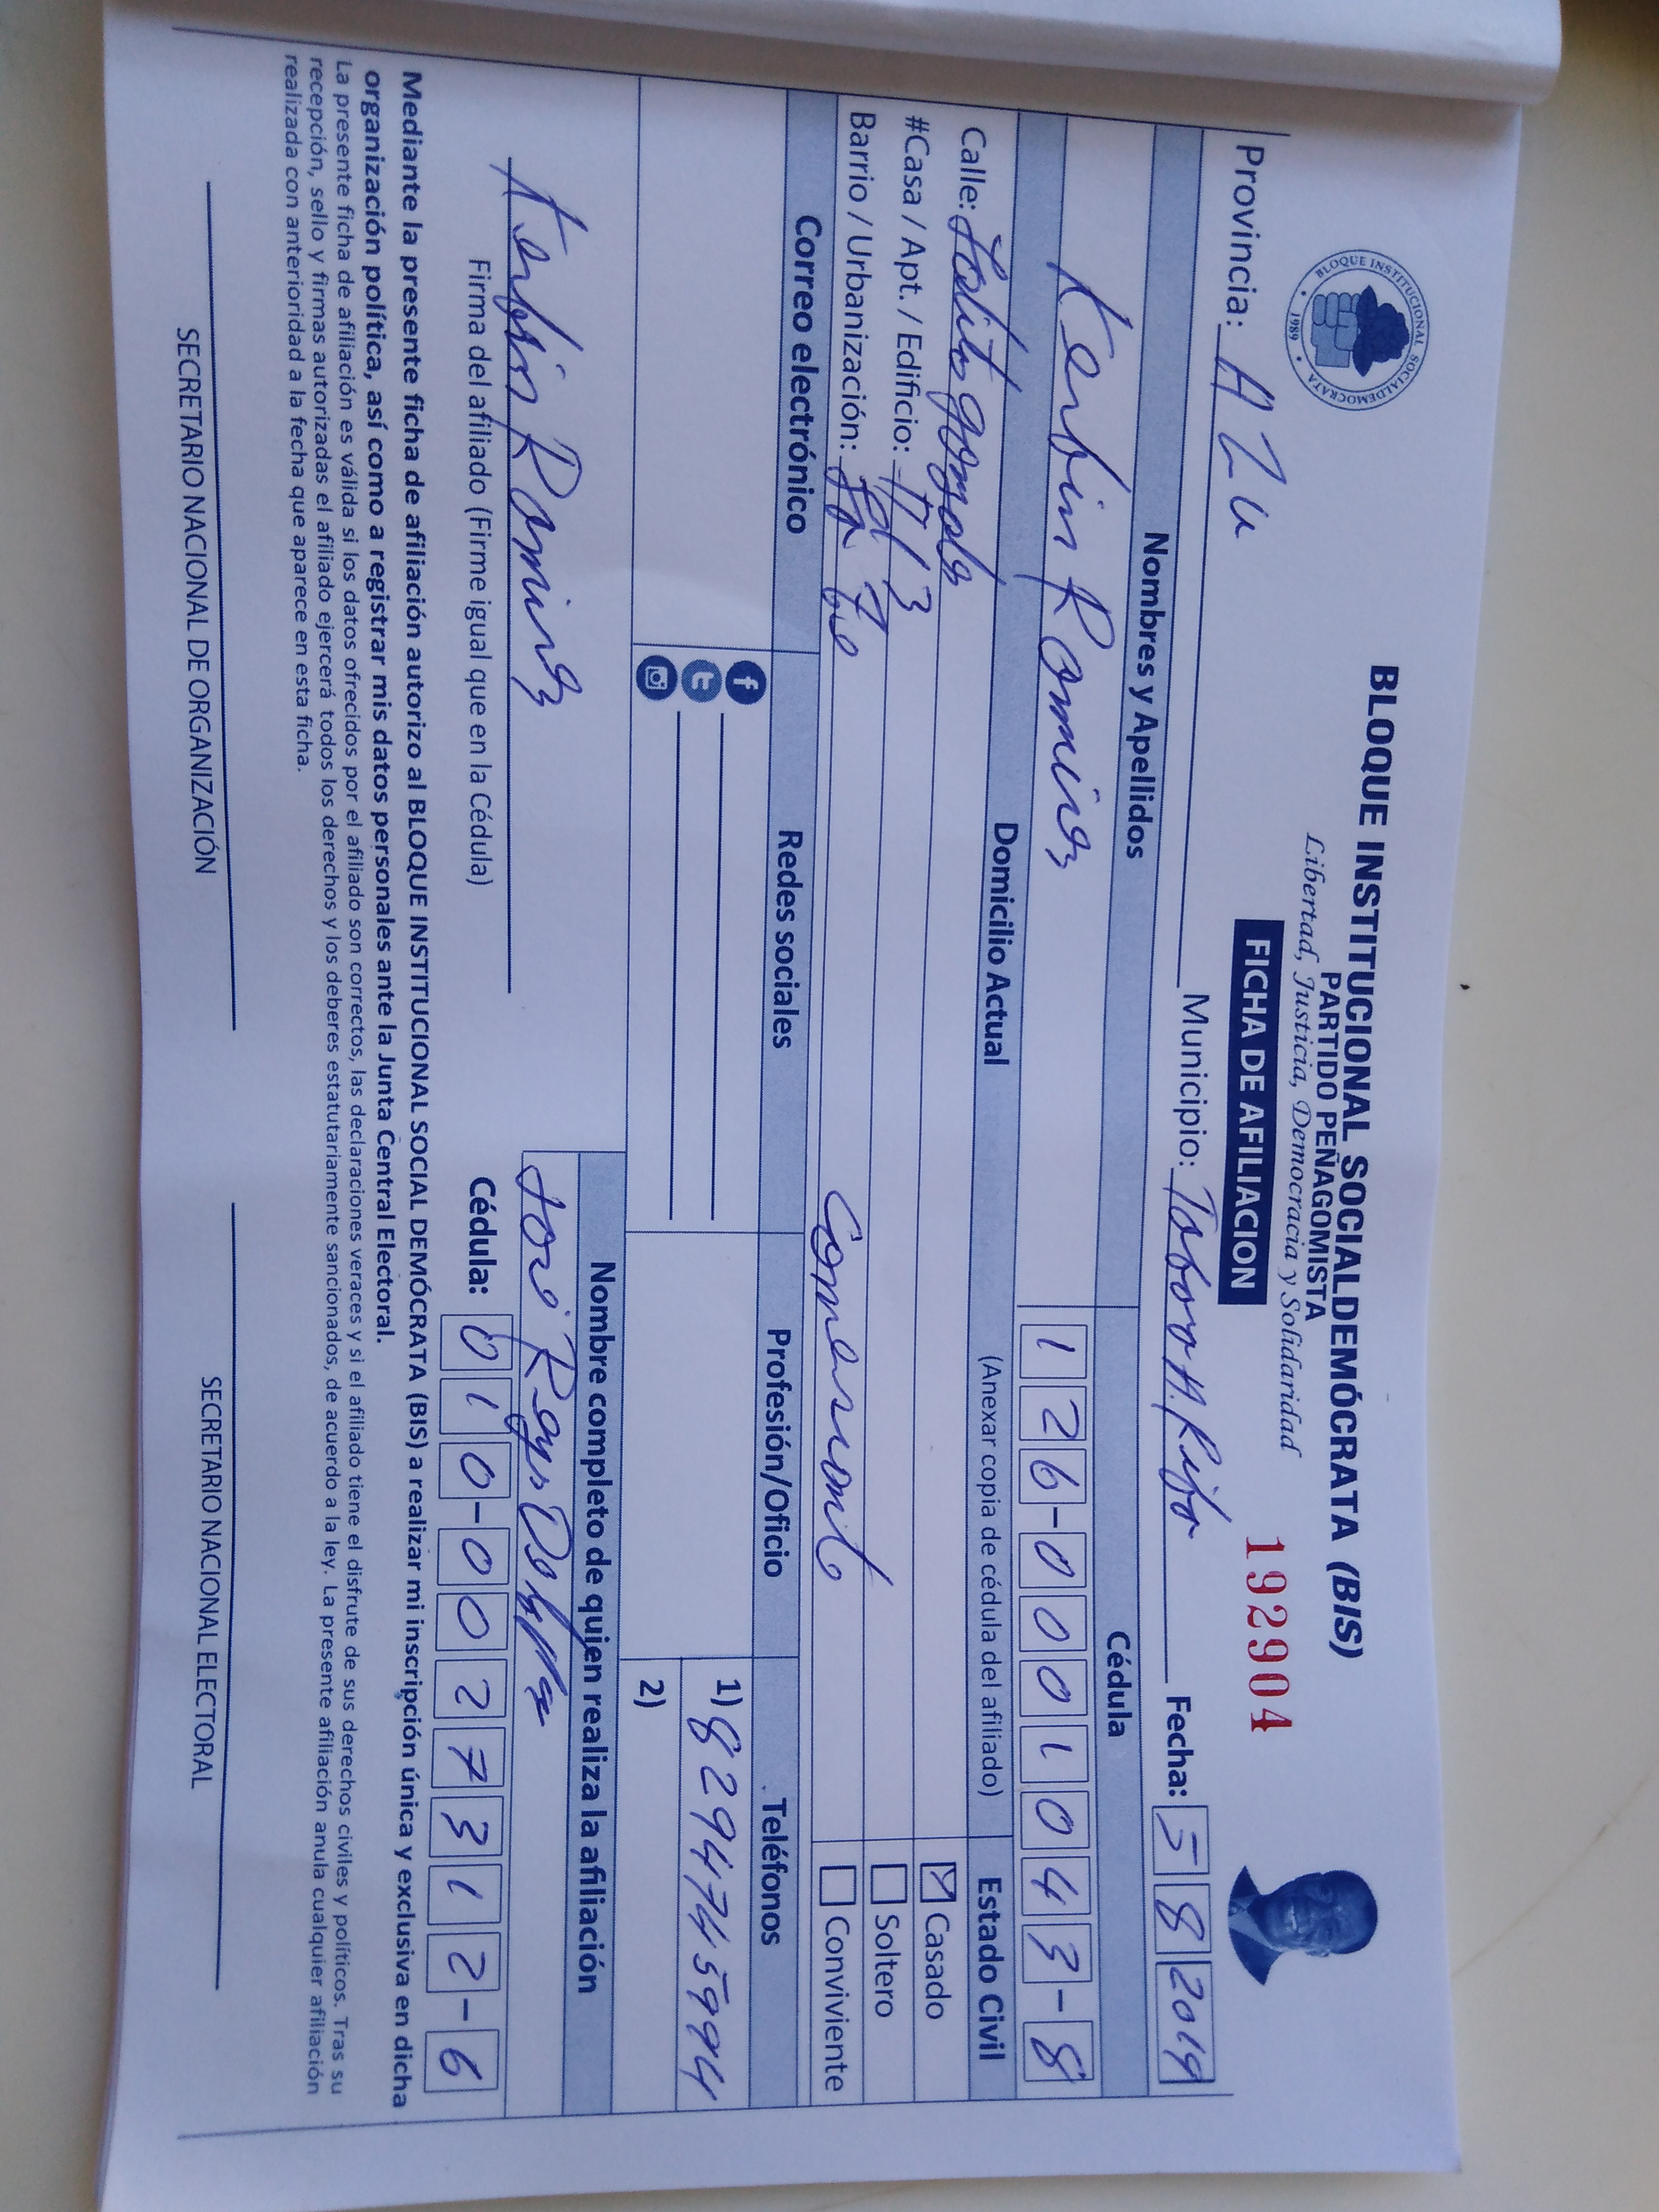 BLOQUE INSTITUCIONAL SOCIALDEMOCRATA
1989
BLOQUE INSTITUCIONAL SOCIALDEMÓCRATA (BIS)
PARTIDO PEÑAGOMISTA
Libertad, Justicia, Democracia y Solidaridad
FICHA DE AFILIACION
192904
Provincia: Azu Municipio: Fecha: 5 8 2019
Nombres y Apellidos Cédula
Kerbin Ramirez 126-0001043-8
Domicilio Actual (Anexar copia de cédula del afiliado) Estado Civil
Calle: Casado
#Casa / Apt. / Edificio: Soltero
Barrio / Urbanización: Conviviente
Correo electrónico Redes sociales Profesión/Oficio Teléfonos
1) 8294745994
2)
Nombre completo de quien realiza la afiliación
Kerbin Ramirez
Firma del afiliado (Firme igual que en la Cédula) Cédula: 010-0027312-6
Mediante la presente ficha de afiliación autorizo al BLOQUE INSTITUCIONAL SOCIAL DEMÓCRATA (BIS) a realizar mi inscripción única y exclusiva en dicha
organización política, así como a registrar mis datos personales ante la Junta Central Electoral.
La presente ficha de afiliación es válida si los datos ofrecidos por el afiliado son correctos, las declaraciones veraces y si el afiliado tiene el disfrute de sus derechos civiles y políticos. Tras su
recepción, sello y firmas autorizadas el afiliado ejercerá todos los derechos y los deberes estatutariamente sancionados, de acuerdo a la ley. La presente afiliación anula cualquier afiliación
realizada con anterioridad a la fecha que aparece en esta ficha.
SECRETARIO NACIONAL DE ORGANIZACIÓN SECRETARIO NACIONAL ELECTORAL